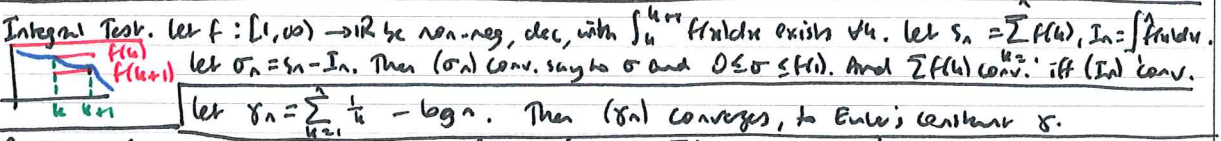 Integral Test. Let f : [1,∞) → ℝ be non-neg, dec, with ∫ₖᵏ⁺¹ f(x)dx exists ∀k. Let sₙ = Σₖ₌₁ⁿ f(k), Iₙ = ∫₁ⁿ f(x)dx.
f(k)
f(k+1) Let σₙ = sₙ - Iₙ. Then (σₙ) conv. say to σ and 0 ≤ σ ≤ f(1). And Σf(k) conv. iff (Iₙ) conv.
k k+1 Let γₙ = Σₖ₌₁ⁿ 1/k - log n. Then (γₙ) converges, to Euler's constant γ.